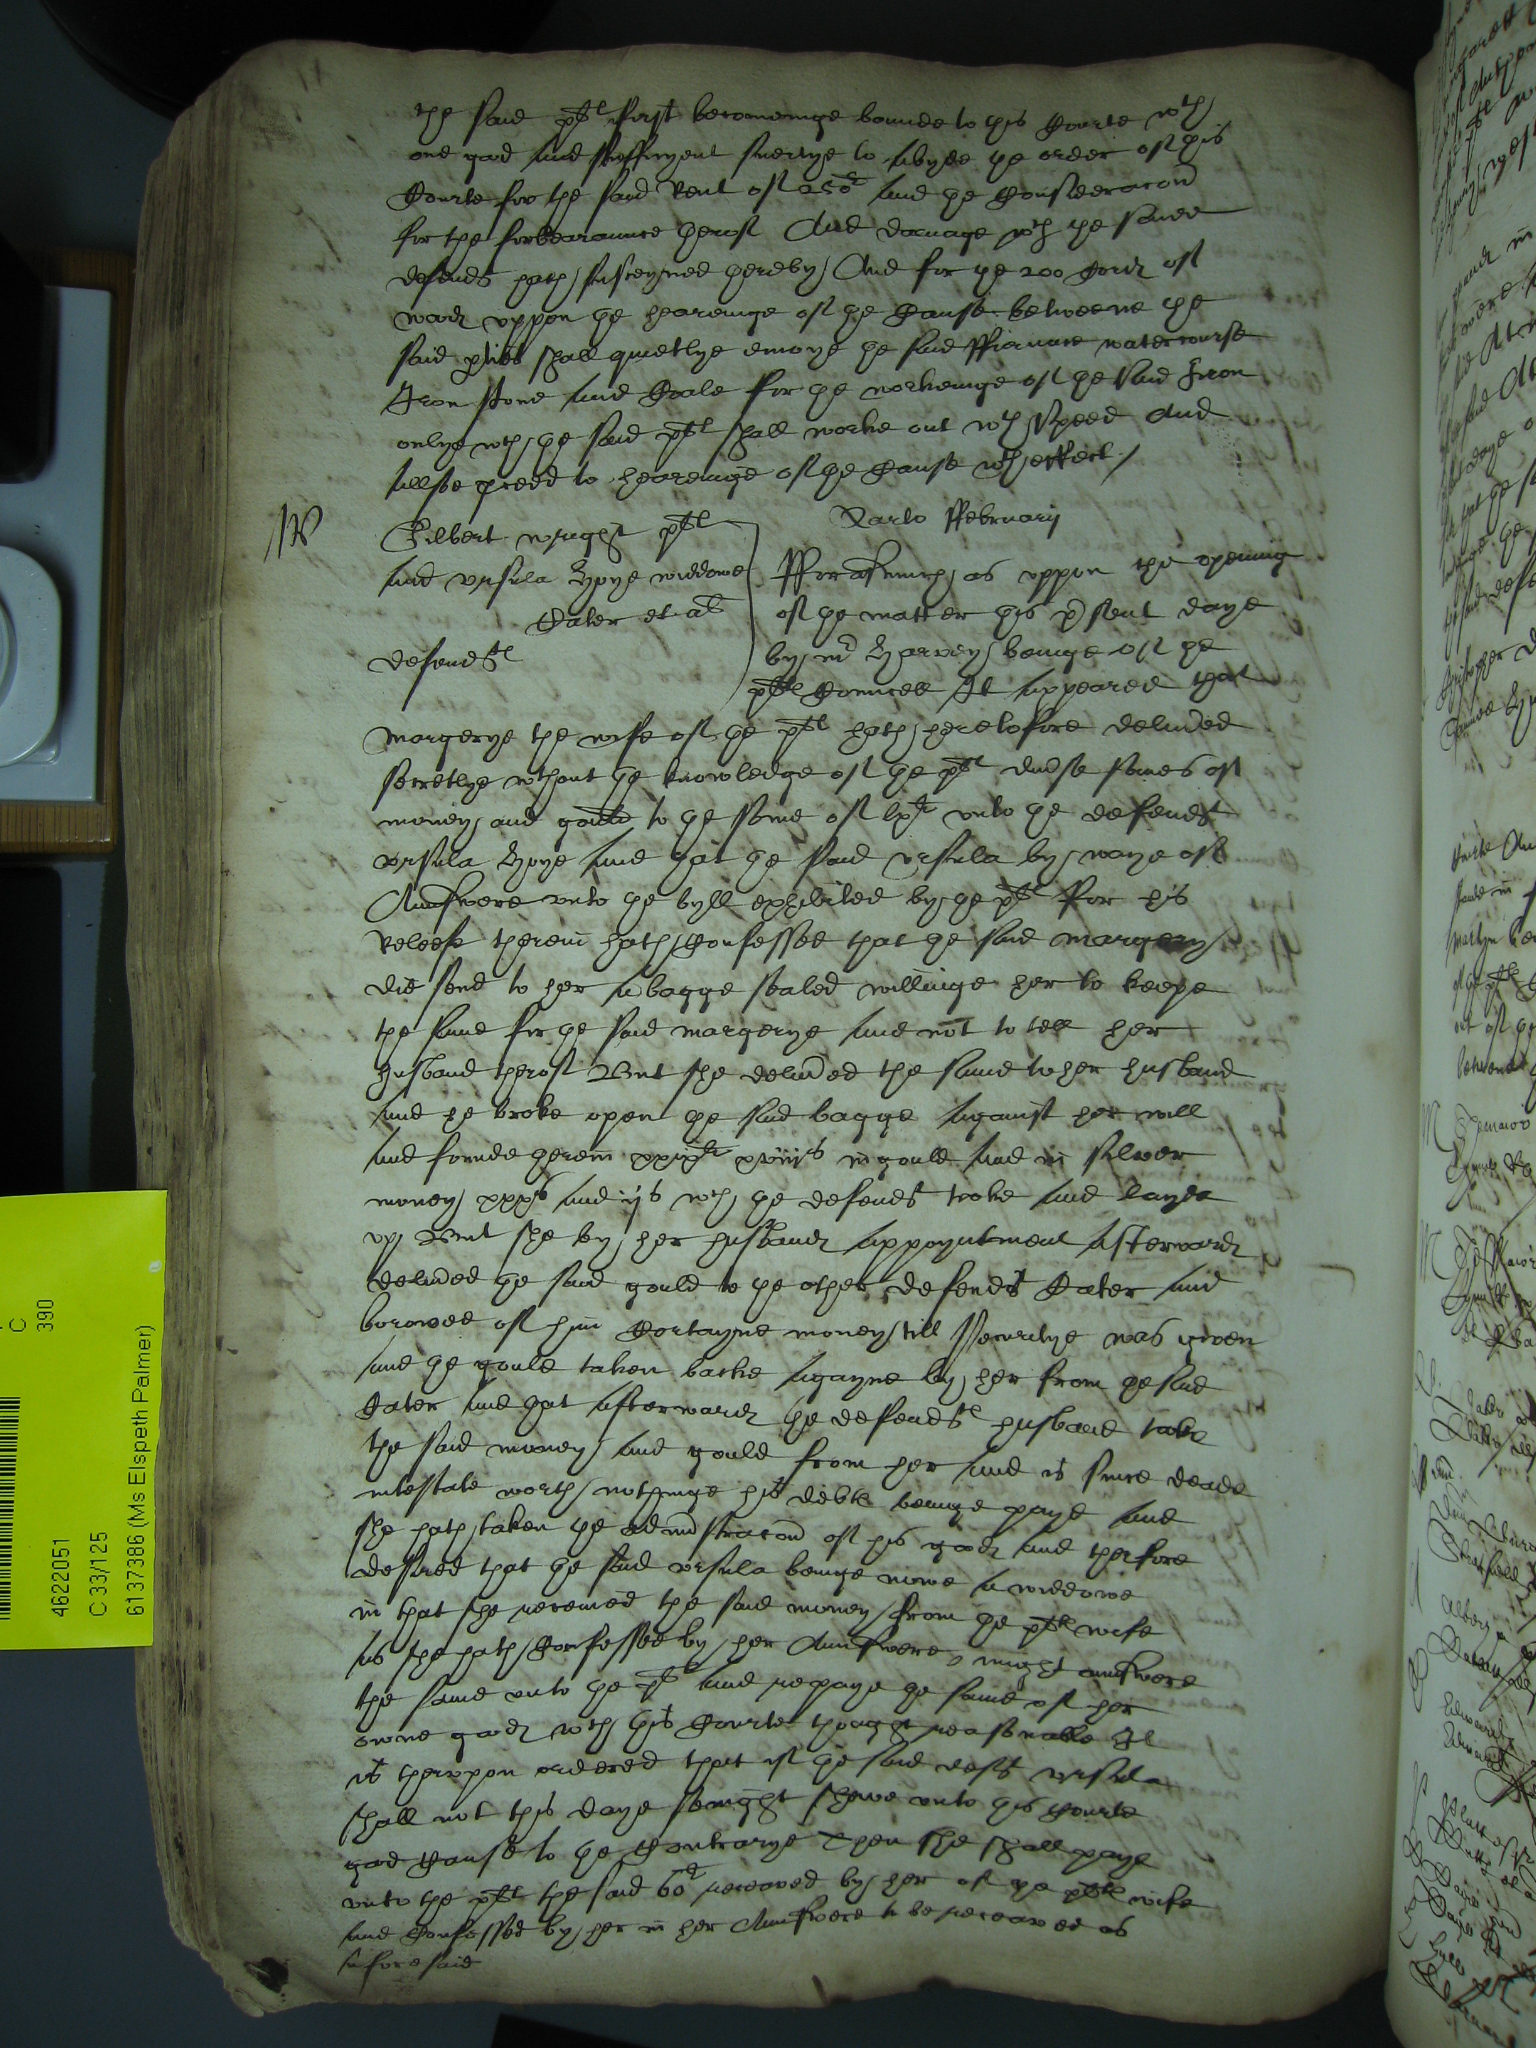 the said plt first becominge bounde to this Courte wth
one good and sufficyent suertye to abyde the order of this
Courte for the said Rent of 250li and the Consideracon
for the forbearaunce therof And damage wch the same
defendt hath susteyned therby And for the 200 Cords of
woode uppon the hearinge of the Cause betweene the
said pties shall quietlye enioye the said ffurnace watercourse
Iron stone and Coale for the workeinge of the said Iron
onlye wch the said plt shall worke out wth speed And
allsoe pceed to hearinge of the Cause wth effect /
Quarto ffebruarij
Gilbert wright plt
and Ursula Hoye widdowe
Cater et al
defendts
fforasmuch as uppon the openinge
of the matter this psent daye
by mr Harvey beinge of the
plts Councell It appeared that
Margerye the wife of the plt hath heretofore delived
secretlye wthout the knowledge of the plt divse somes of
money and gould to the some of lxli unto the defendt
Ursula Hoye and that the said Ursula by waye of
Aunswere unto the byll exhibited by the plt for his
Releefe therein hath Confessed that the said Margery
did send to her a bagge sealed willinge her to keepe
the same for the said Margerye and not to tell her
husband therof But she delived the same to her husband
and he broke open the said bagge against her will
and founde therein xxixli xviijs in gould and in silver
money xxxli and ijs wch the defendt tooke and layde
up But she by her husbands appoyntment afterwards
delived the said gould to the other defendt Cater and
borowed of him Certayne money till Securitye was given
and the gould taken backe agayne by her from the said
Cater and that afterwards the defendts husband tooke
the said money and gould from her and is since deade
intestate worth nothinge his debts beinge payd and
she hath taken the administracon of his goods and therfore
desired that the said Ursula beinge nowe a widdowe
in that she received the said money from the plts wife
as she hath Confessed by her Aunswere might aunswere
the same unto the plt and repaye the same of her
owne goods wch this Courte thought reasonable It
is therupon ordered that if the said deft Ursula
shall not this daye sevnight shewe unto this Courte
good Cause to the Contrarye Then she shall paye
unto the plt the said 60li receaved by her of the plts wife
and Confessed by her in her Aunswere to be receaved as
aforesaid
C
390
4622051
C 33/125
6137386 (Ms Elspeth Palmer)